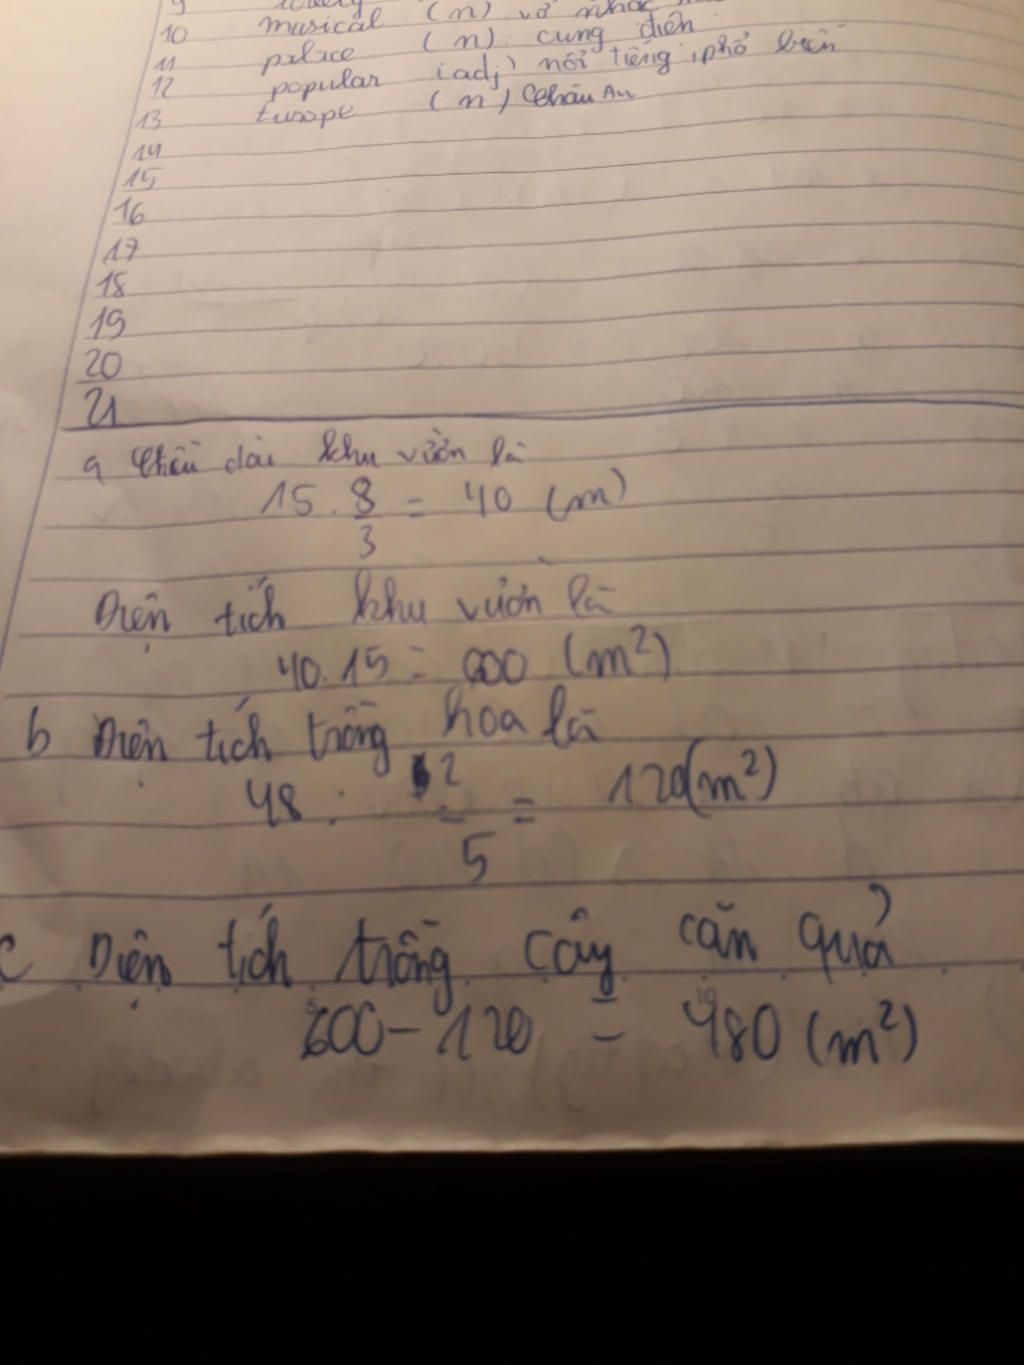 9
10 musical (n) vở nhạc
11 palace (n) cung điện
12 popular (adj) nổi tiếng, phổ biến
13 Europe (n) Châu Âu
14
15
16
17
18
19
20
21
a Chiều dài khu vườn là
15 . 8/3 = 40 (m)
Diện tích khu vườn là
40.15 = 600 (m²)
b Diện tích trồng hoa là
48 : 2/5 = 120 (m²)
c Diện tích trồng cây căn quả
600 - 120 = 480 (m²)